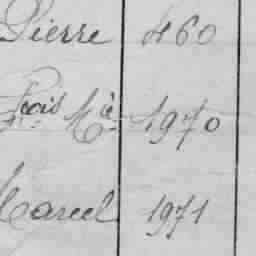 Pierre 460
Fçois Mie 1970
Marcel 1971